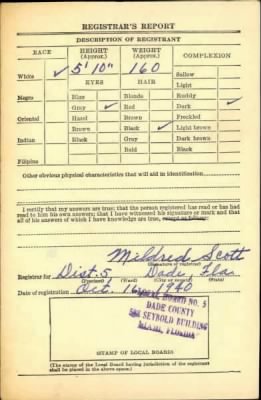 REGISTRAR'S REPORT
DESCRIPTION OF REGISTRANT
RACE HEIGHT (Approx.) WEIGHT (Approx.) COMPLEXION
White ✓ 5' 10" 160 Sallow
EYES HAIR Light
Negro Blue Blonde Ruddy
Gray ✓ Red Dark ✓
Oriental Hazel Brown Freckled
Brown Black ✓ Light brown
Indian Black Gray Dark brown
Bald Black
Filipino
Other obvious physical characteristics that will aid in identification
I certify that my answers are true; that the person registered has read or has had
read to him his own answers; that I have witnessed his signature or mark and that
all of his answers of which I have knowledge are true, except as follows:
Mildred Scott
(Signature of registrar)
Registrar for Dist. 5 Dade, Fla.
(Precinct) (Ward) (City or County) (State)
Date of registration Oct. 16, 1940
LOCAL BOARD NO. 5
DADE COUNTY
SEYBOLD BUILDING
MIAMI, FLORIDA
(STAMP OF LOCAL BOARD)
(The stamp of the Local Board having jurisdiction of the registrant
shall be placed in the above space.)